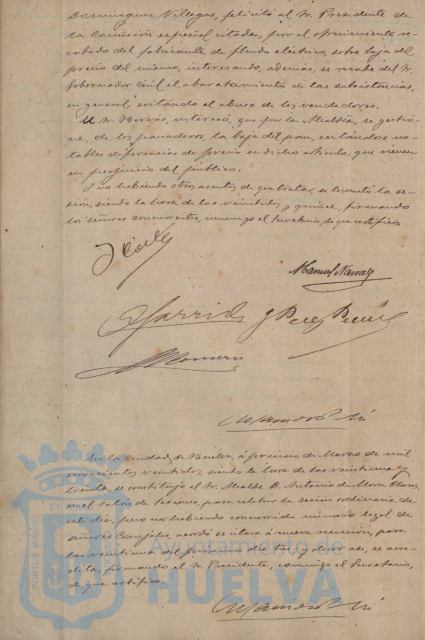 Dominguez Villegas, felicitó al Sr. Presidente de
la Comisión especial citada, por el ofrecimiento re-
cabado del fabricante de fluido eléctrico, sobre baja del
precio del mismo, interesando, además, se recabe del Sr.
Gobernador Civil el abaratamiento de las subsistencias,
en general, evitando el abuso de los vendedores.
El Sr. interesó, que por la Alcaldía, se gestio-
ne, de los panaderos, la baja del pan, evitándose no-
tables diferencias de precio en dicho artículo, que vienen
en perjuicio del público.
Y no habiendo otros asuntos de que tratar, se levantó la se-
sión, siendo la hora de las veintidós y quince, firmando
los señores concurrentes, conmigo el Secretario, de que certifico
Manuel Narvaez
Garrido J Perez
Romero
En la Ciudad de Huelva, á primero de Marzo de mil
novecientos veintidós, siendo la hora de las veintiuna y
treinta, se constituyó el Sr. Alcalde D. Antonio de Mora Claros,
en el salón de Sesiones, para celebrar la sesión ordinaria de
este día, pero no habiendo concurrido número legal de
señores Concejales, acordó se citara á nueva reunión, para
las veintiuna del próximo día tres. Y de ser así, se acre-
dita, firmando el Sr. Presidente, conmigo el Secretario,
de que certifico.
Ayuntamiento de
HUELVA
PORTUS MARIS